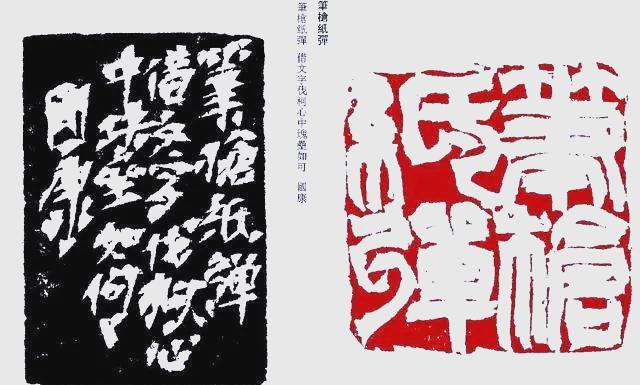 筆槍
紙彈
筆槍紙彈
筆槍紙彈 借文字伐柯心中塊壘如可 國康
筆槍紙彈
借文字伐柯心
中塊壘如何
国康